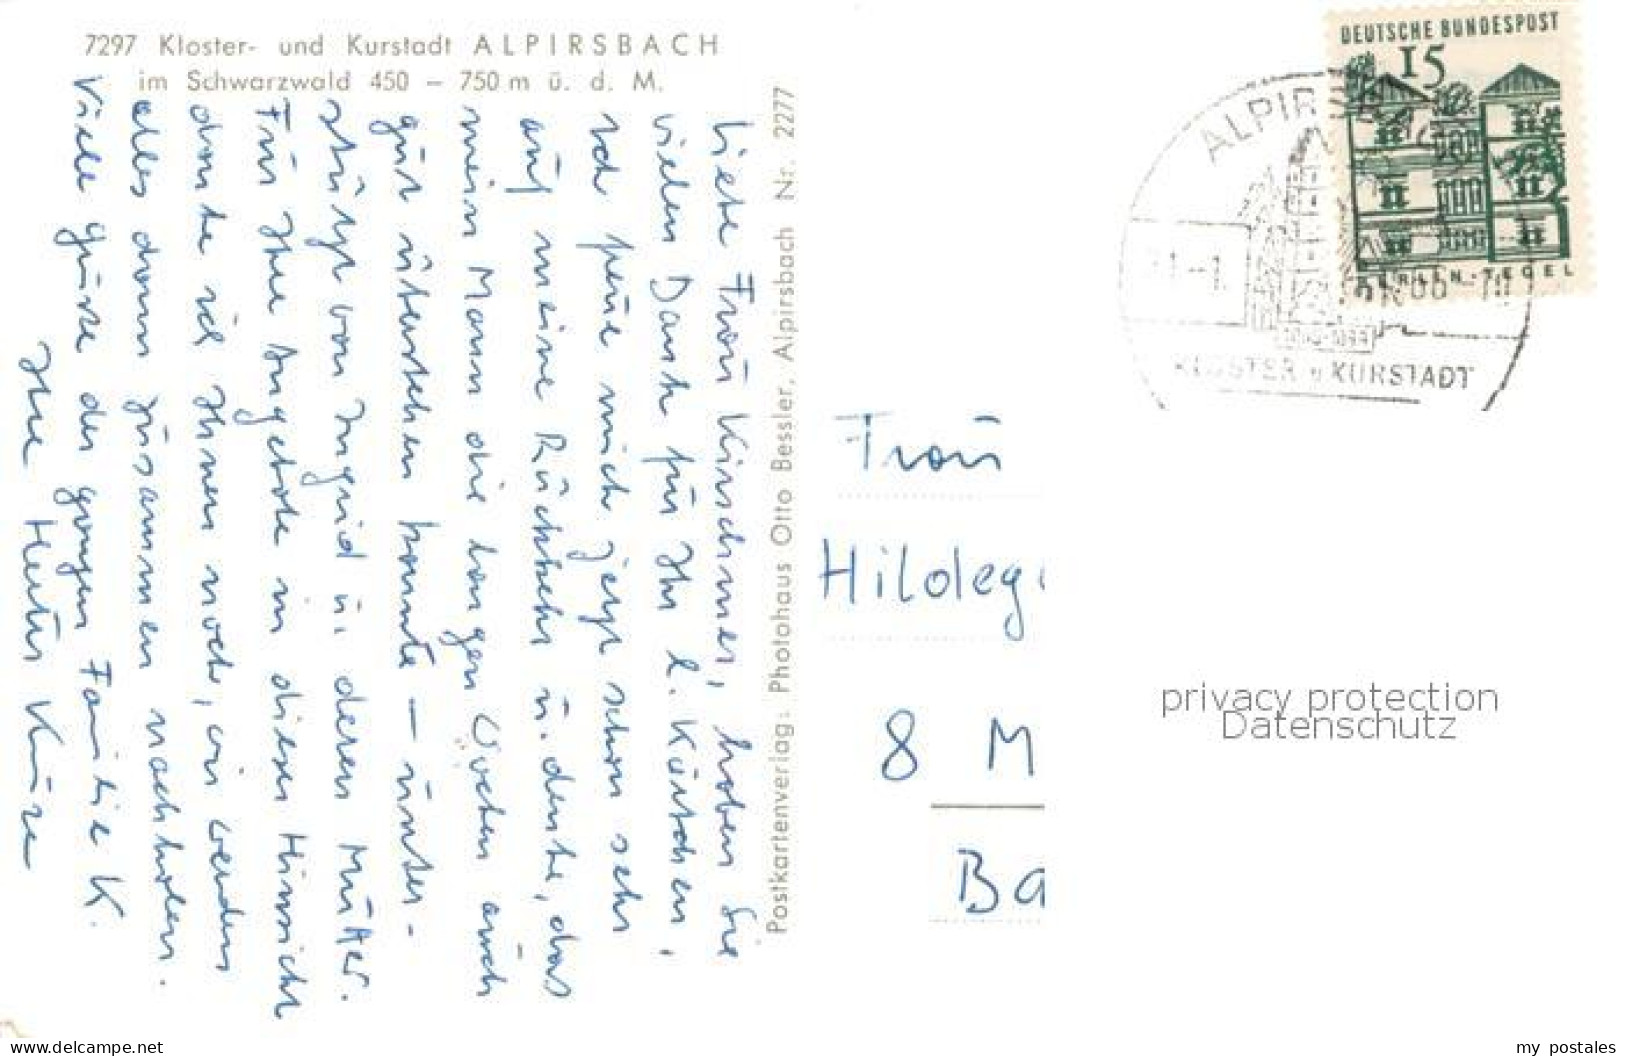 7297 Kloster- und Kurstadt ALPIRSBACH
im Schwarzwald 450 – 750 m ü. d. M.
Liebe Frau Kirschner, haben Sie
vielen Dank für Ihr l. Kärtchen,
ich freue mich jetzt schon sehr
auf meine Rückkehr u. denke, das
mein Mann die langen Wochen auch
gut überstehen konnte – unter-
stützt von Ingrid u. deren Mutter.
Für Ihre Angebote in dieser Hinsicht
danke ich Ihnen noch, wir werden
alles dann zusammen nachholen.
Viele Grüsse der ganzen Familie K.
Ihre Herta
Postkartenverlag: Photohaus Otto Bessler, Alpirsbach Nr. 2277
DEUTSCHE BUNDESPOST
15
BERLIN-TEGEL
ALPIRSBACH
KLOSTER u. KURSTADT
Frau
Hildeg
8 M
Ba
privacy protection
Datenschutz
www.delcampe.net
my postales